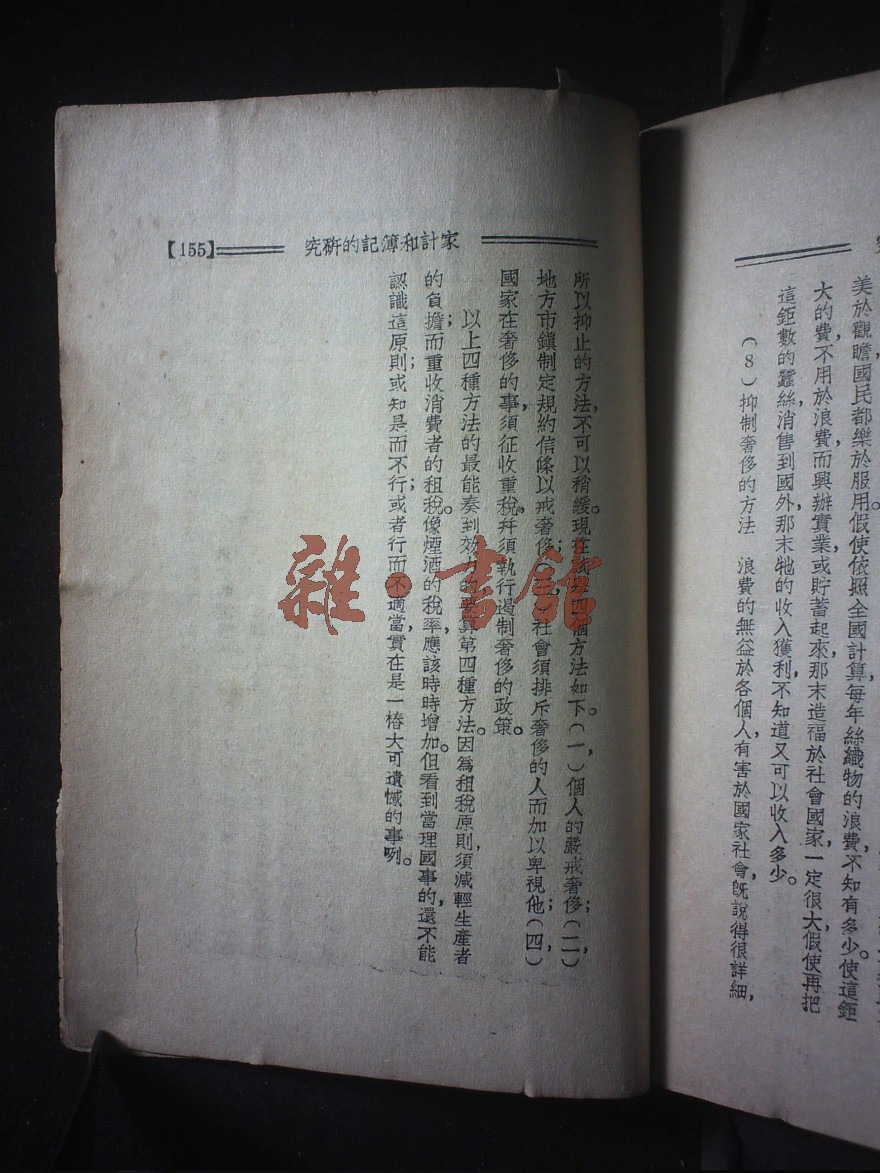 美於觀瞻，國民都樂於服用。假使依照全國計算，每年絲織物的浪費，不知有多少。使這鉅
大的費，不用於浪費，而興辦實業，或貯蓄起來，那末造福於社會國家，一定很大，假使再把
這鉅數的蠶絲，消售到國外，那末牠的收入獲利，不知道又可以收入多少。
（8）抑制奢侈的方法　浪費的無益於各個人，有害於國家社會，旣說得很詳細，
【155】
家計和簿記的研究
所以抑止的方法，不可以稍緩。現在四個方法如下。（一），個人的嚴戒奢侈；（二），
地方市鎭制定規約信條，以戒奢侈；（三），社會須排斥奢侈的人，而加以卑視他；（四），
國家在奢侈的事，須征收重稅，幷須執行遏制奢侈的政策。
以上四種方法的最能奏到效力的要算第四種方法。因爲租稅原則，須減輕生產者
的負擔；而重收消費者的租稅。像煙酒的稅率，應該時時增加。但看到當理國事的，還不能
認識這原則；或知是而不行；或者行而不適當，實在是一樁大可遺憾的事咧。
雜·書館